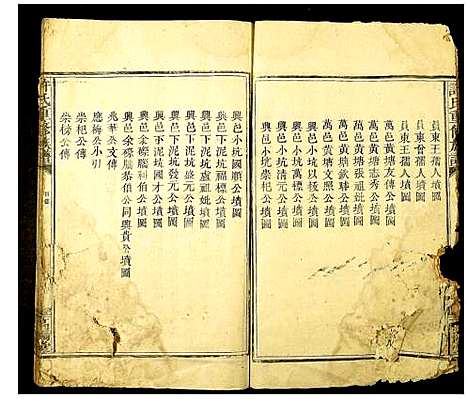 員東王孺人墳圖
員東曾孺人墳圖
員東王孺人墳圖
萬邑黃塘友傳公墳圖
萬邑黃塘志秀公墳圖
萬邑黃塘張祖妣墳圖
萬邑黃塘欽聯公墳圖
萬邑黃塘文照公墳圖
興邑小坑以極公墳圖
興邑小坑萬標公墳圖
興邑小坑崇杞公墳圖
興邑小坑國順公墳圖
興邑小坑福標公墳圖
興邑下泥坑盧祖妣墳圖
興邑下泥坑盛元公墳圖
興邑下泥坑發元公墳圖
興邑下泥坑國才公墳圖
興邑金腦科伯公墳圖
興邑金腦恭伯公同興貴公墳圖
兆華公支傳
應梅公小引
崇杞公傳
崇榜公傳